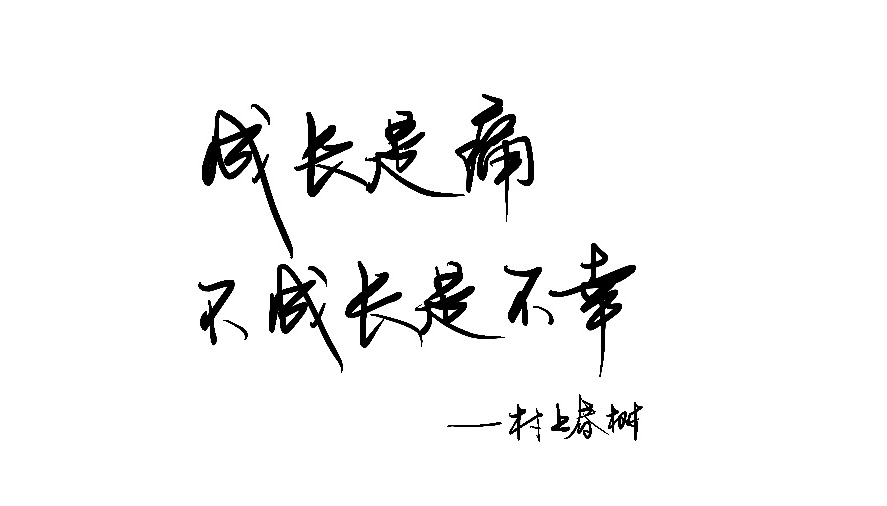 成长是痛
不成长是不幸
——村上春树